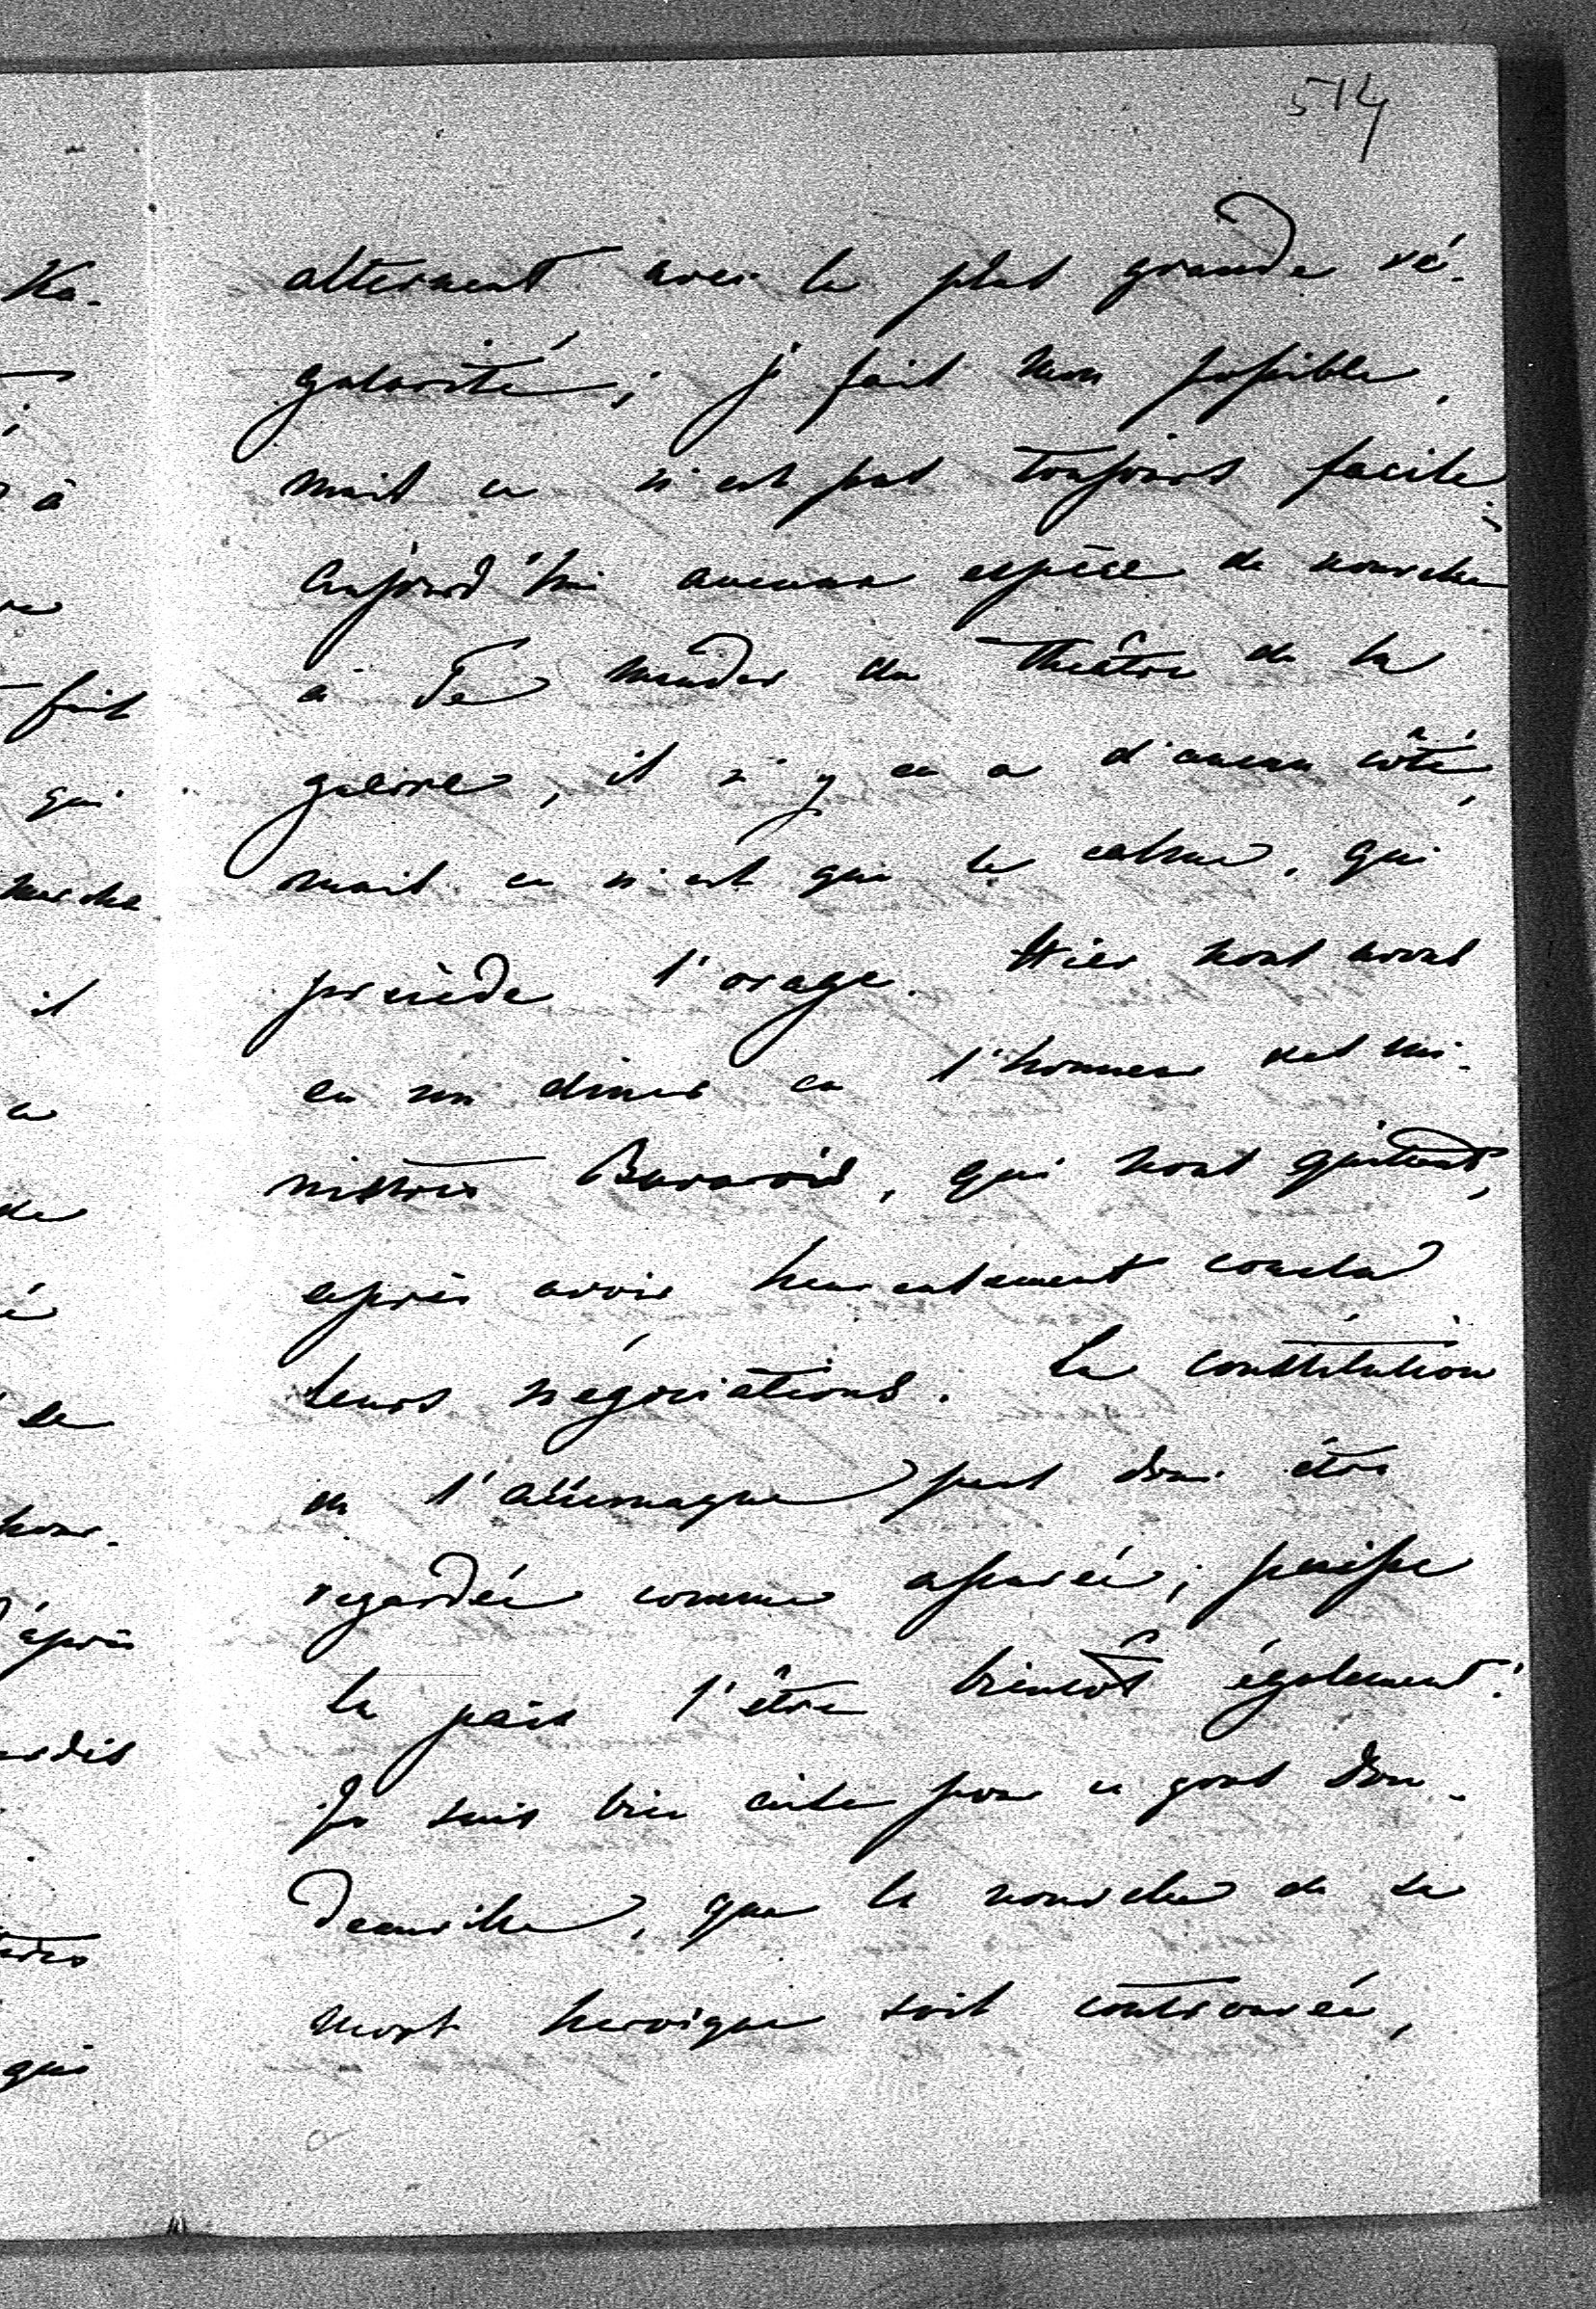 514
alternent avec la plus grande ré-
gularité; je fais mon possible,
mais ce n'est pas toujours facile;
aujourd'hui aucune espèce de nouvelle
à Te mander du théâtre de la
guerre, il n'y en a d'aucun côté,
mais ce n'est que le calme, qui
précède l'orage. Hier nous avons
eu un diner en l'honneur des mi-
nistres Bavarois, qui nous quittent,
après avoir heureusement conclu
leurs négociations. La constitution
de l'allemagne peut donc être
regardée comme assurée; puisse
la paix l'être bientôt également!
Je suis bien aise pour ce gous Don-
deauville, que la nouvelle de sa
mort heroique soit controuvée,
Ka-
à
fait
qui
marche
il
a
de
é
se
hom-
après
qui